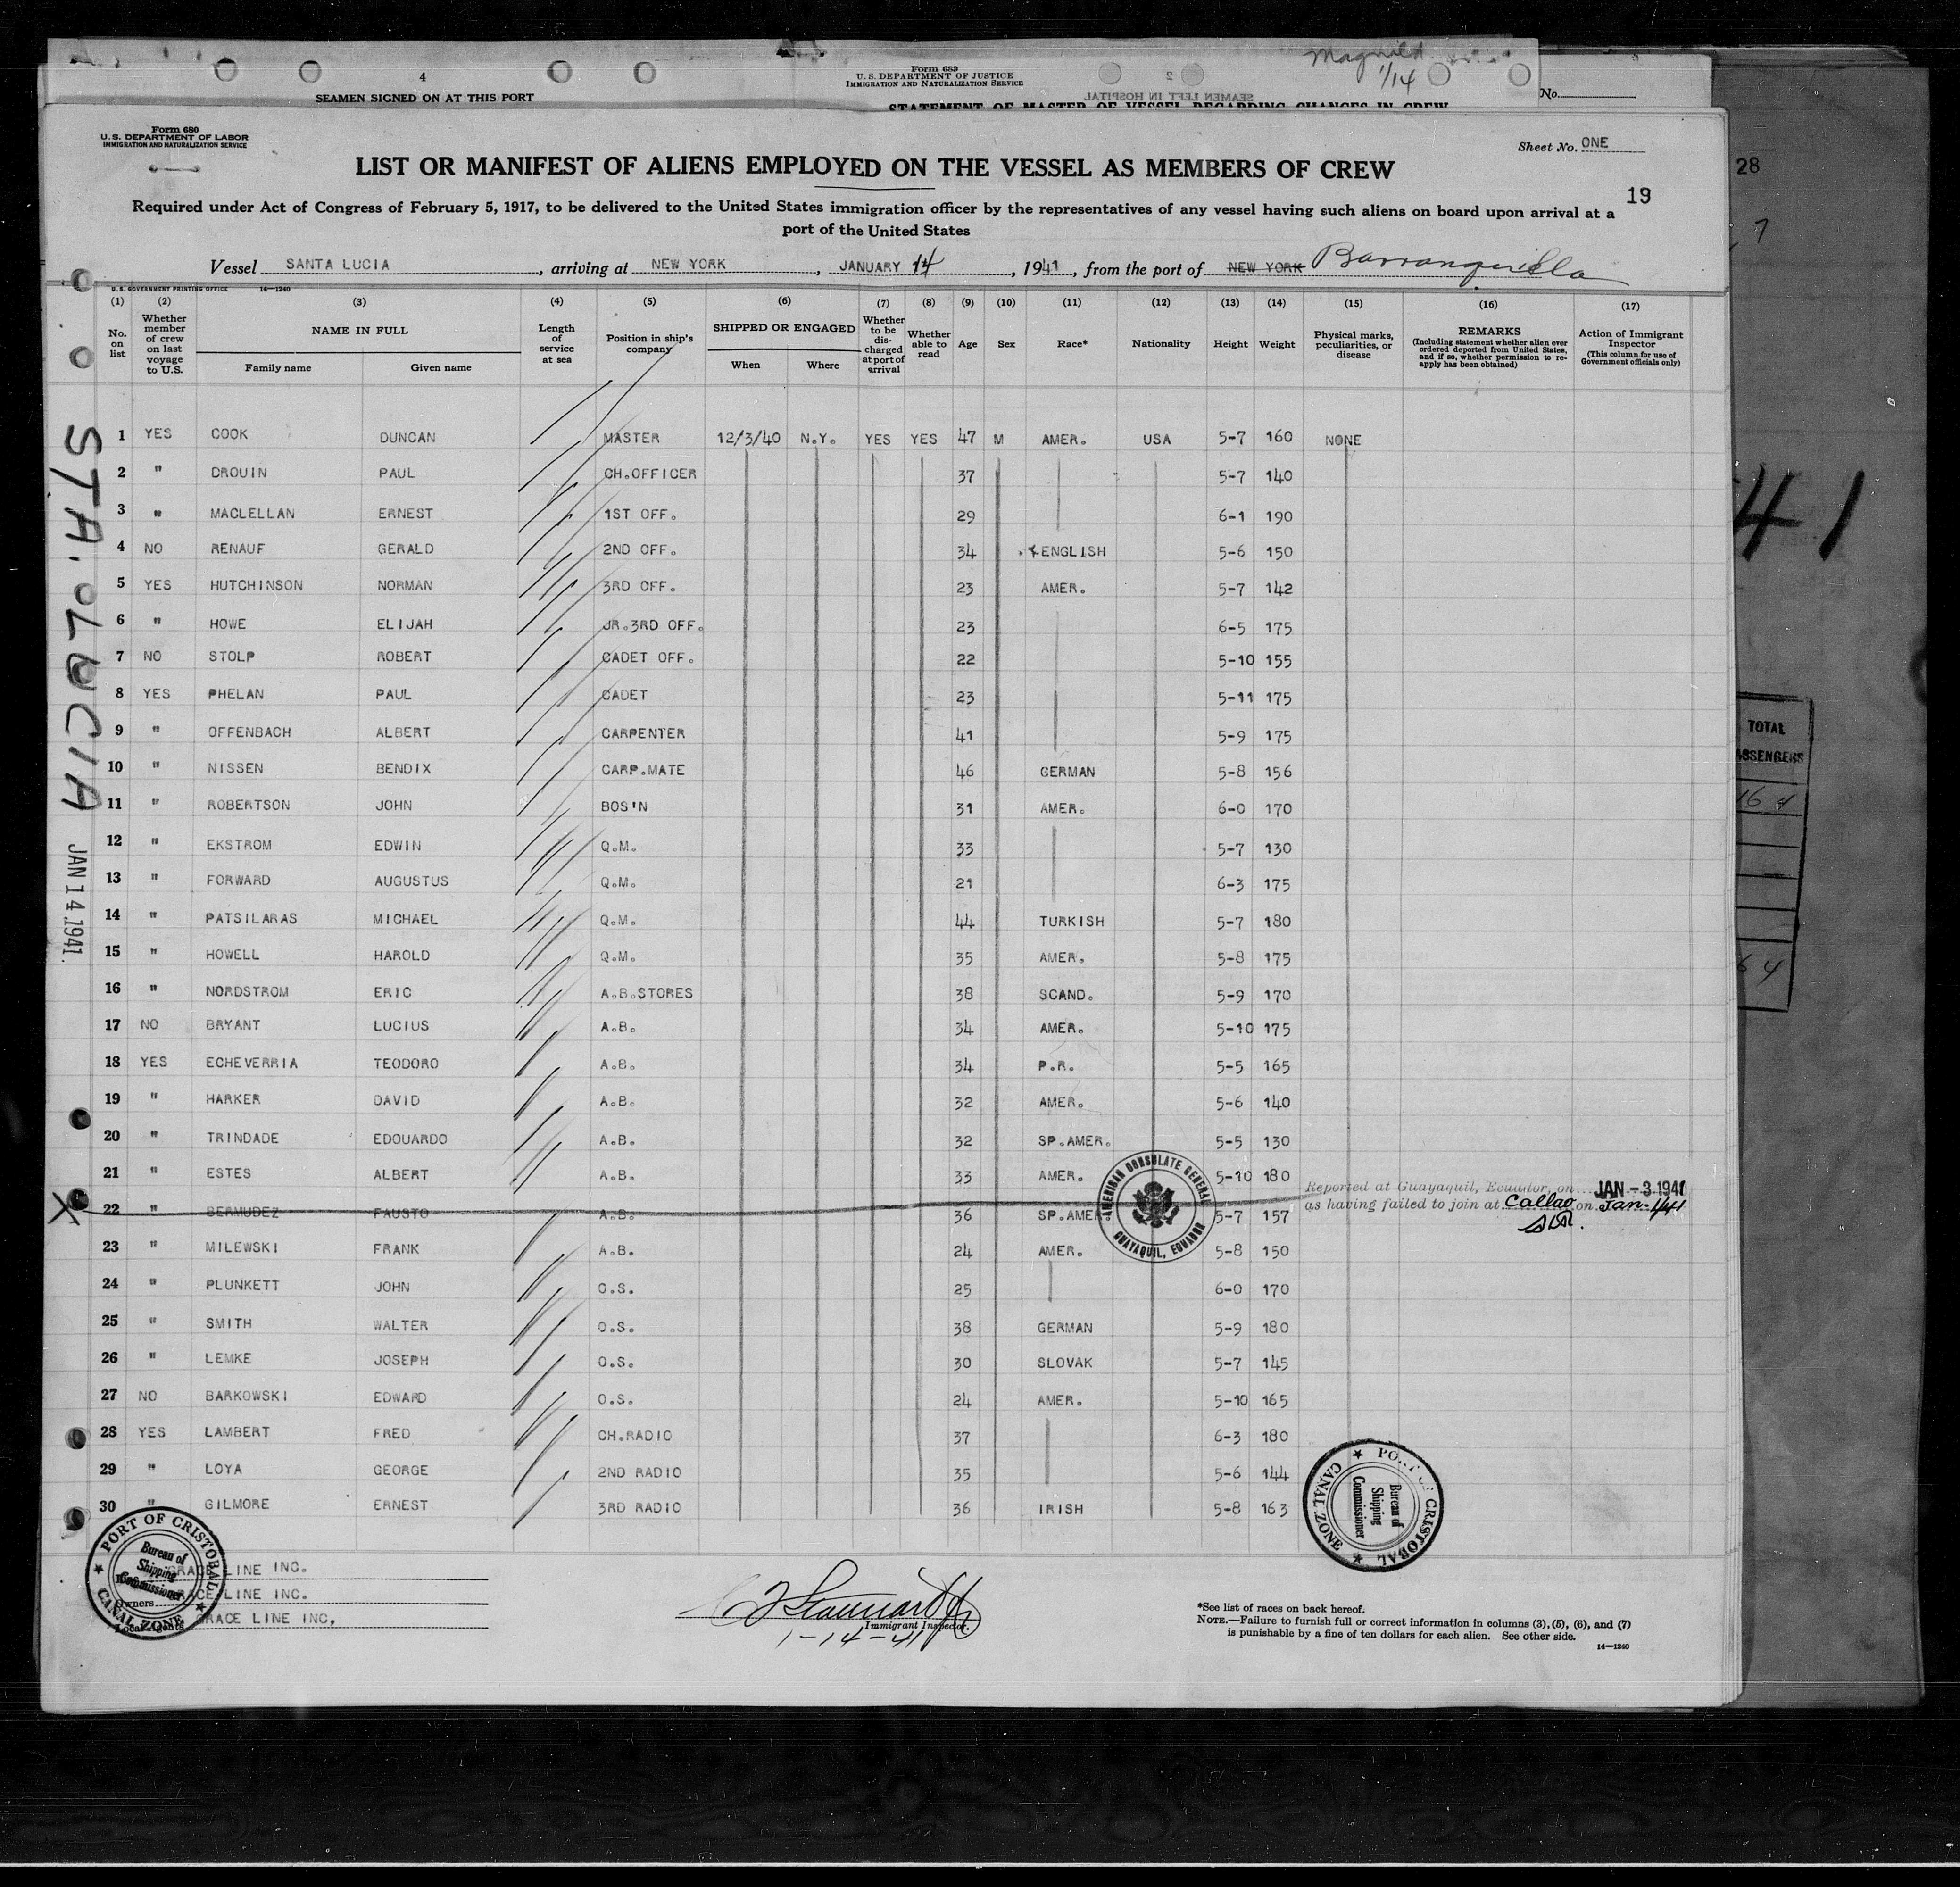 4
SEAMEN SIGNED ON AT THIS PORT
Form 683
U. S. DEPARTMENT OF JUSTICE
IMMIGRATION AND NATURALIZATION SERVICE
SEAMEN LEFT IN HOSPITAL
2
1/14
No.
STATEMENT OF MASTER OF VESSEL REGARDING CHANGES IN CREW
Form 680
U. S. DEPARTMENT OF LABOR
IMMIGRATION AND NATURALIZATION SERVICE
Sheet No. ONE
LIST OR MANIFEST OF ALIENS EMPLOYED ON THE VESSEL AS MEMBERS OF CREW
19
28
Required under Act of Congress of February 5, 1917, to be delivered to the United States immigration officer by the representatives of any vessel having such aliens on board upon arrival at a
port of the United States
Vessel SANTA LUCIA, arriving at NEW YORK, JANUARY 14, 1941, from the port of NEW YORK Barranquilla
U. S. GOVERNMENT PRINTING OFFICE 14—1240
(1) (2) (3) (4) (5) (6) (7) (8) (9) (10) (11) (12) (13) (14) (15) (16) (17)
No. on list
Whether member of crew on last voyage to U.S.
NAME IN FULL
Family name
Given name
Length of service at sea
Position in ship's company
SHIPPED OR ENGAGED
When
Where
Whether to be discharged at port of arrival
Whether able to read
Age
Sex
Race*
Nationality
Height
Weight
Physical marks, peculiarities, or disease
REMARKS
(Including statement whether alien ever ordered deported from United States, and if so, whether permission to reapply has been obtained)
Action of Immigrant Inspector
(This column for use of Government officials only)
1 YES COOK DUNCAN MASTER 12/3/40 N.Y. YES YES 47 M AMER. USA 5-7 160 NONE
2 " DROUIN PAUL CH.OFFICER 37 5-7 140
3 " MACLELLAN ERNEST 1ST OFF. 29 6-1 190
4 NO RENAUF GERALD 2ND OFF. 34 ENGLISH 5-6 150
5 YES HUTCHINSON NORMAN 3RD OFF. 23 AMER. 5-7 142
6 " HOWE ELIJAH JR.3RD OFF. 23 6-5 175
7 NO STOLP ROBERT CADET OFF. 22 5-10 155
8 YES PHELAN PAUL CADET 23 5-11 175
9 " OFFENBACH ALBERT CARPENTER 41 5-9 175
10 " NISSEN BENDIX CARP.MATE 46 GERMAN 5-8 156
11 " ROBERTSON JOHN BOS'N 31 AMER. 6-0 170
12 " EKSTROM EDWIN Q.M. 33 5-7 130
13 " FORWARD AUGUSTUS Q.M. 21 6-3 175
14 " PATSILARAS MICHAEL Q.M. 44 TURKISH 5-7 180
15 " HOWELL HAROLD Q.M. 35 AMER. 5-8 175
16 " NORDSTROM ERIC A.B.STORES 38 SCAND. 5-9 170
17 NO BRYANT LUCIUS A.B. 34 AMER. 5-10 175
18 YES ECHEVERRIA TEODORO A.B. 34 P.R. 5-5 165
19 " HARKER DAVID A.B. 32 AMER. 5-6 140
20 " TRINDADE EDOUARDO A.B. 32 SP.AMER. 5-5 130
21 " ESTES ALBERT A.B. 33 AMER. 5-10 180
Reported at Guayaquil, Ecuador, on JAN -3 1941
X 22 " BERMUDEZ FAUSTO A.B. 36 SP.AMER. 5-7 157
as having failed to join at Callao on Jan. 1/41
23 " MILEWSKI FRANK A.B. 24 AMER. 5-8 150
24 " PLUNKETT JOHN O.S. 25 6-0 170
25 " SMITH WALTER O.S. 38 GERMAN 5-9 180
26 " LEMKE JOSEPH O.S. 30 SLOVAK 5-7 145
27 NO BARKOWSKI EDWARD O.S. 24 AMER. 5-10 165
28 YES LAMBERT FRED CH.RADIO 37 6-3 180
29 " LOYA GEORGE 2ND RADIO 35 5-6 144
30 " GILMORE ERNEST 3RD RADIO 36 IRISH 5-8 163
STA. LUCIA
JAN 14 1941
AMERICAN CONSULATE GENERAL
GUAYAQUIL, ECUADOR
PORT OF CRISTOBAL
Bureau of Shipping Commissioner
CANAL ZONE
PORT OF CRISTOBAL
Bureau of Shipping Commissioner
CANAL ZONE
GRACE LINE INC.
Owners GRACE LINE INC.
Local Agents GRACE LINE INC.
Immigrant Inspector.
1-14-41
*See list of races on back hereof.
NOTE.—Failure to furnish full or correct information in columns (3), (5), (6), and (7)
is punishable by a fine of ten dollars for each alien. See other side.
14—1240
7
41
TOTAL
PASSENGERS
164
64